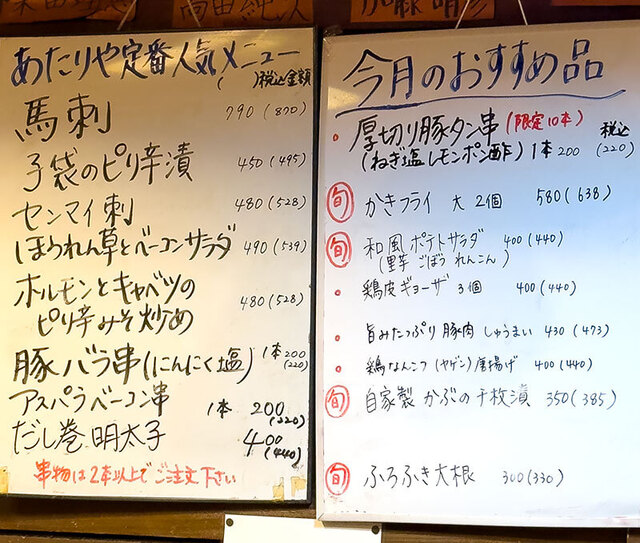 あたりや定番人気メニュー
(税込金額)
馬刺 790 (870)
子袋のピリ辛漬 450 (495)
センマイ刺 480 (528)
ほうれん草とベーコンサラダ 490 (539)
ホルモンとキャベツの
ピリ辛みそ炒め 480 (528)
豚バラ串(にんにく塩) 1本200 (220)
アスパラベーコン串 1本 200 (220)
だし巻明太子 400 (440)
串物は2本以上でご注文下さい
今月のおすすめ品
厚切り豚タン串 (限定10本) 税込
(ねぎ塩レモンポン酢) 1本200 (220)
旬 かきフライ 大 2個 580 (638)
旬 和風ポテトサラダ 400 (440)
(里芋 ごぼう れんこん)
鶏皮ギョーザ 3個 400 (440)
旨みたっぷり 豚肉 しゅうまい 430 (473)
鶏なんこつ (ヤゲン) 唐揚げ 400 (440)
旬 自家製 かぶの千枚漬 350 (385)
旬 ふろふき大根 300 (330)